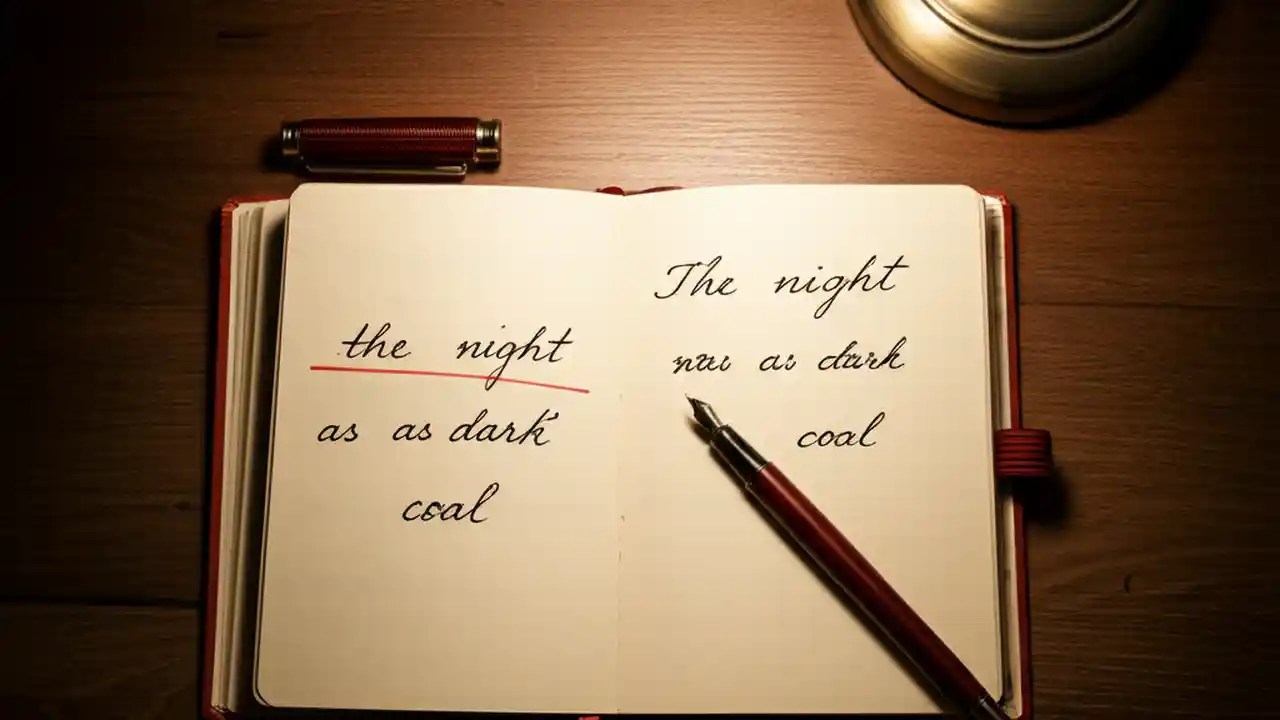 the night
as as dark
coal
The night
as dark
coal